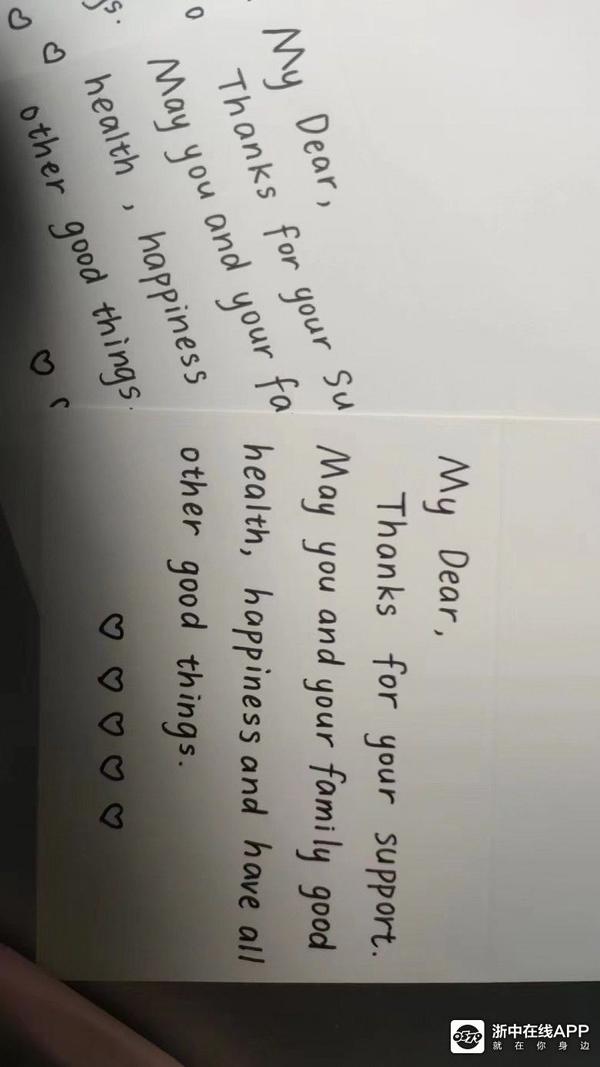 My Dear,
Thanks for your su
May you and your fa
health, happiness
other good things.
My Dear,
Thanks for your support.
May you and your family good
health, happiness and have all
other good things.
浙中在线APP
就在你身边